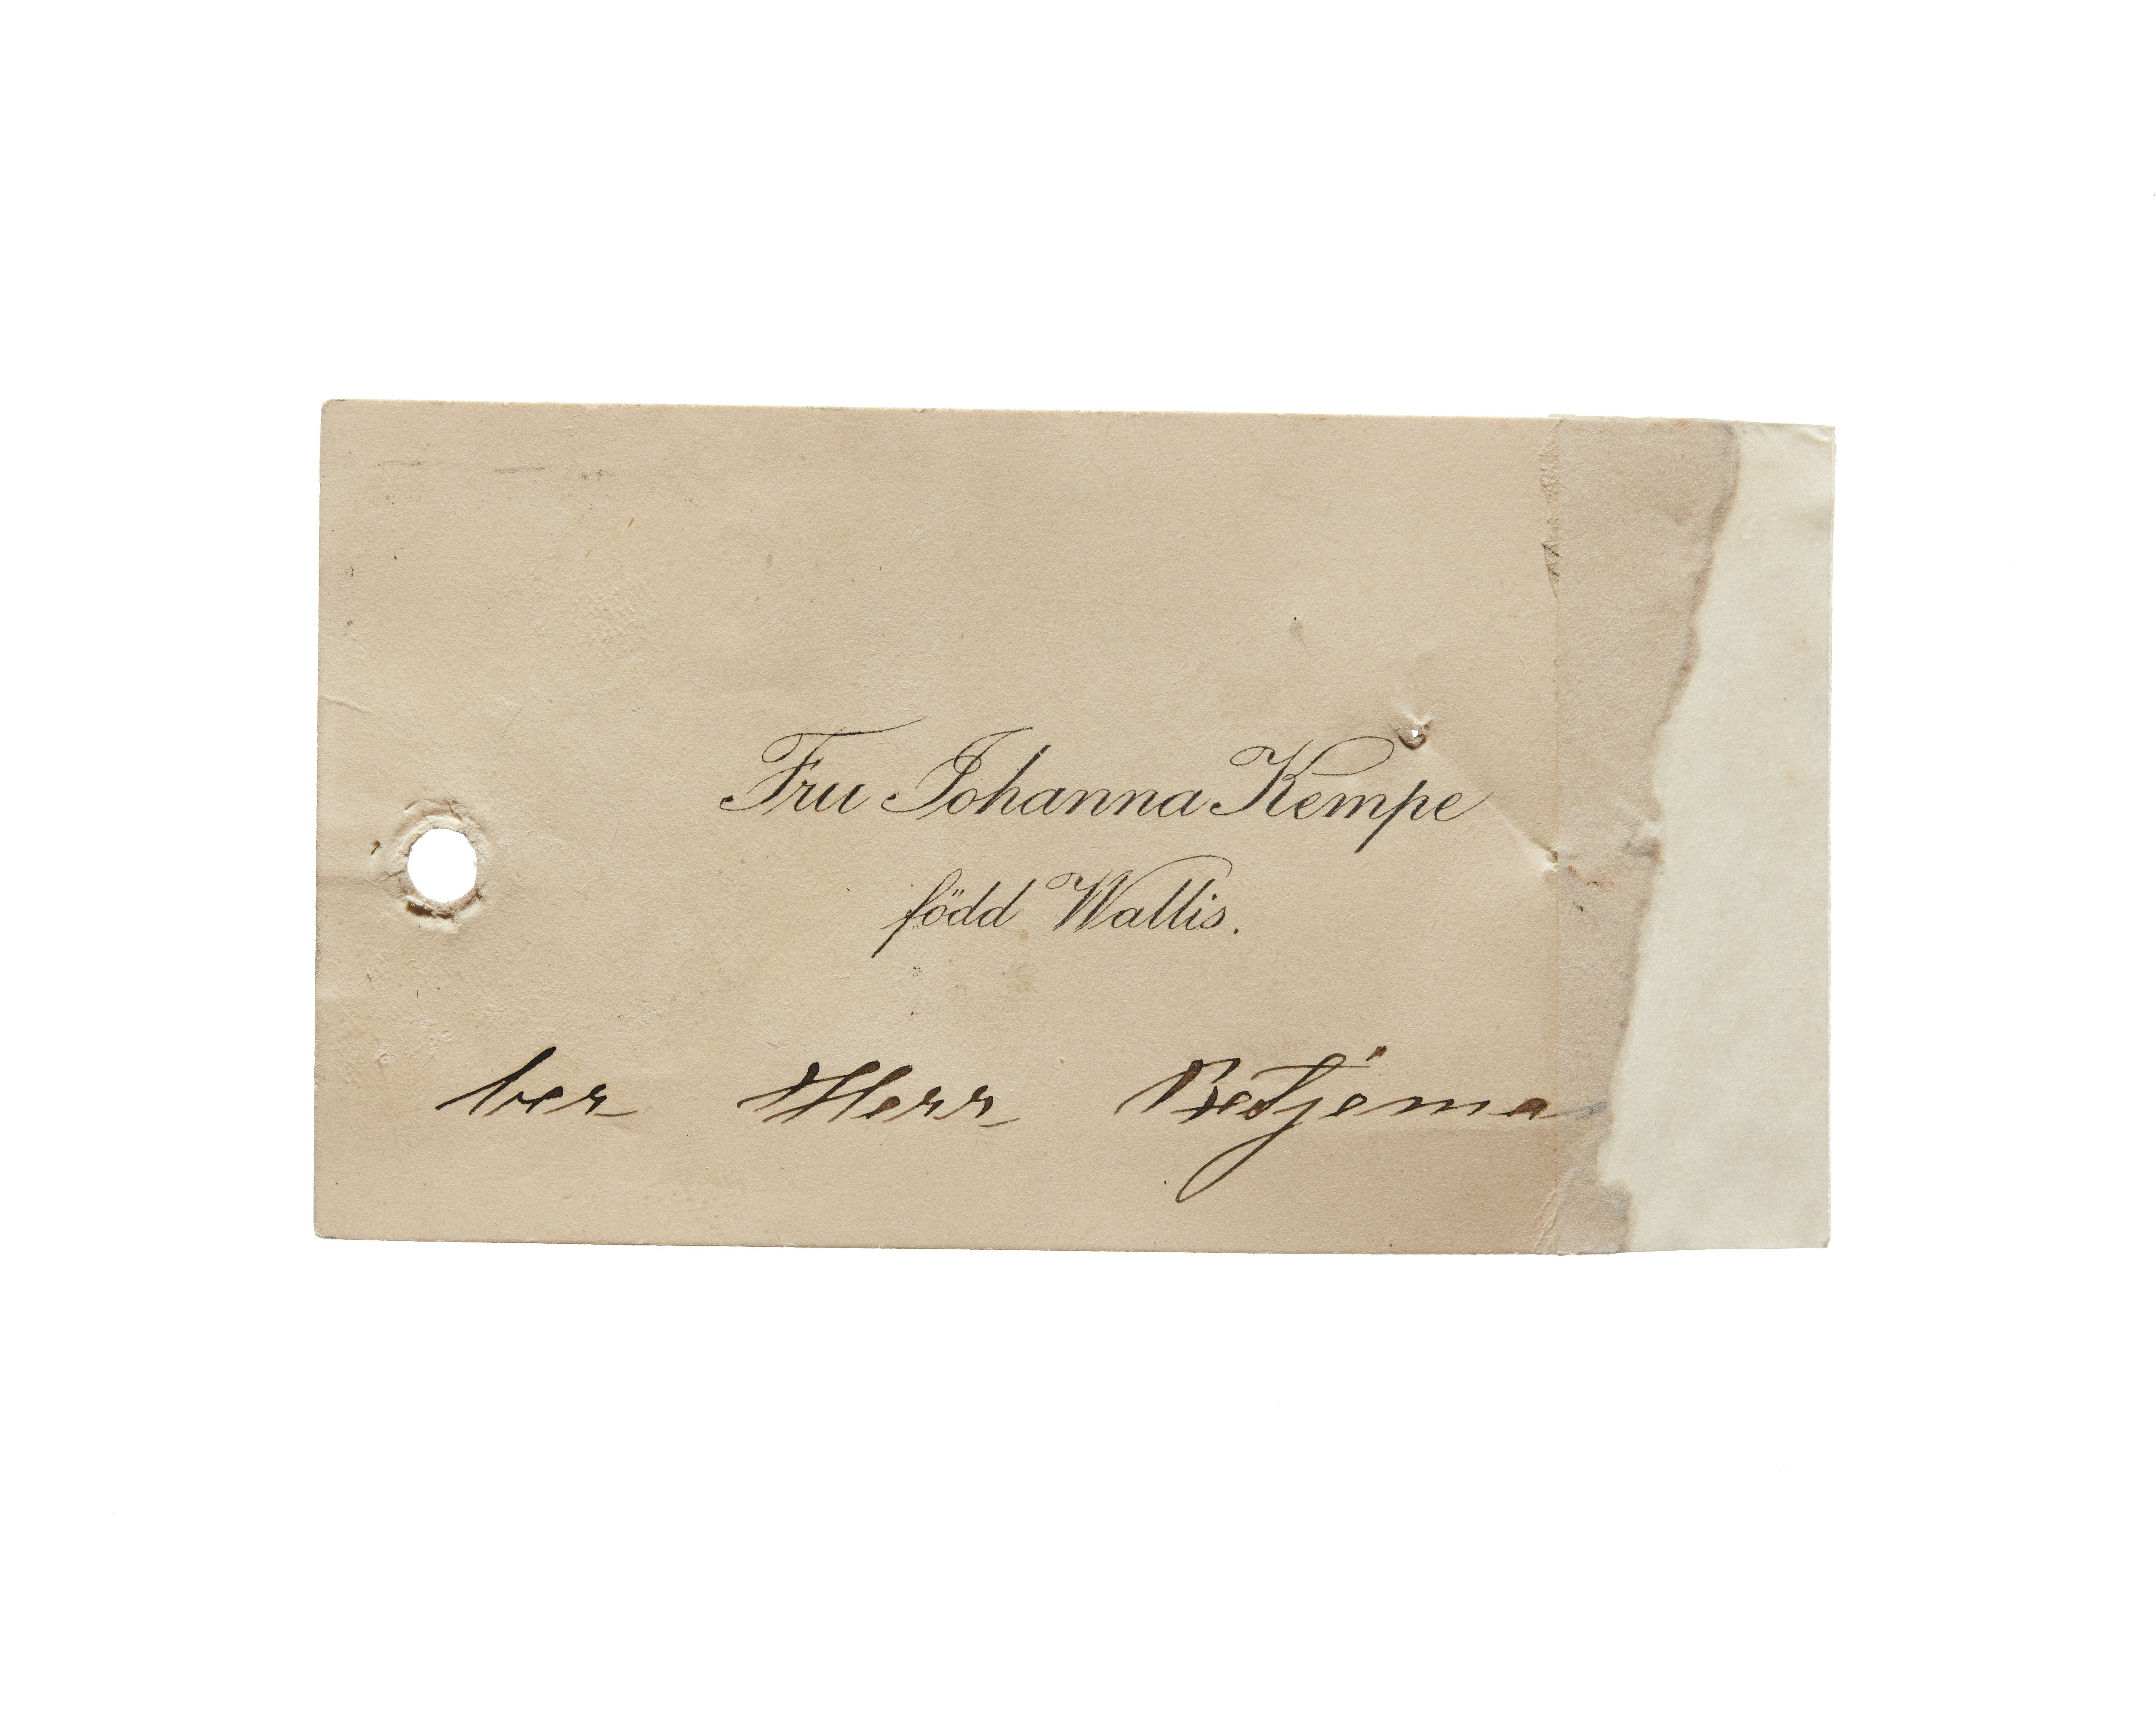 Fru Johanna Kempe
född Wallis.
ber Herr Betjema